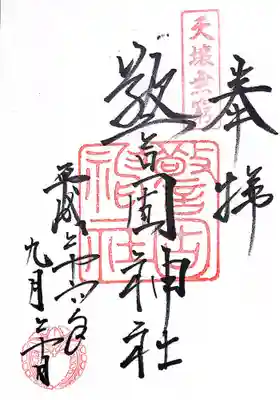 奉拝
天壌無窮
警固神社
警固神社
平成二十六年
九月二十日